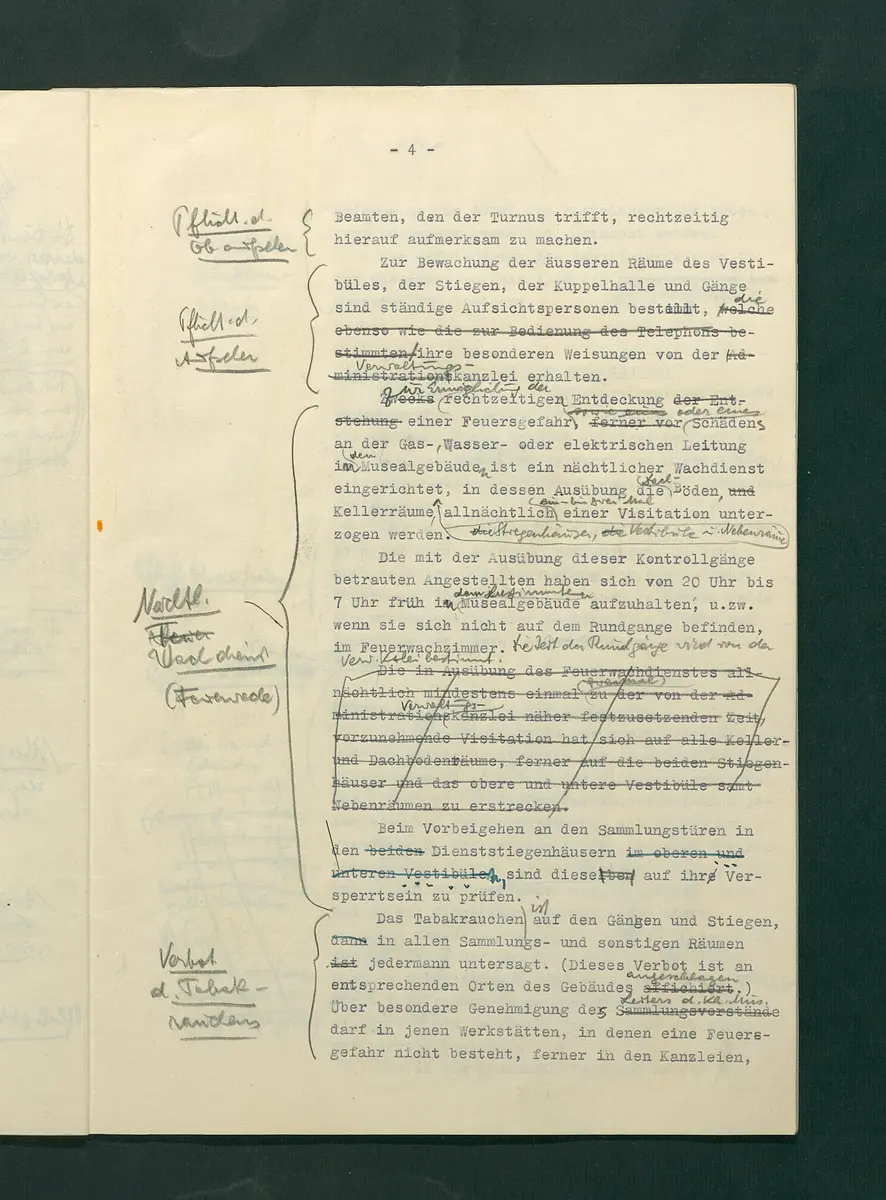 - 4 -
Pflicht. d.
Ob. aufseher
Beamten, den der Turnus trifft, rechtzeitig
hierauf aufmerksam zu machen.
Zur Bewachung der äusseren Räume des Vesti-
büles, der Stiegen, der Kuppelhalle und Gänge
Pflicht. d.
Aufseher
die
sind ständige Aufsichtspersonen bestellt, welche
ebenso wie die zur Bedienung des Telephons be-
stimmten ihre besonderen Weisungen von der Ad-
Verwaltungs-
ministrationskanzlei erhalten.
zur Ermöglichung der
Zwecks rechtzeitigen Entdeckung der Ent-
sowie eines oder eines
stehung einer Feuersgefahr, ferner vor Schadens
an der Gas-, Wasser- oder elektrischen Leitung
den
in Musealgebäuden ist ein nächtlicher Wachdienst
Dach-
eingerichtet, in dessen Ausübung die Böden, und
ein- bis zwei Mal
Kellerräume, allnächtlich einer Visitation unter-
zogen werden. die Stiegenhäuser, die Vestibüle u. Nebenräume
Die mit der Ausübung dieser Kontrollgänge
betrauten Angestellten haben sich von 20 Uhr bis
dem bestimmten
7 Uhr früh im Musealgebäude aufzuhalten, u.zw.
wenn sie sich nicht auf dem Rundgange befinden,
im Feuerwachzimmer. Die Zeit der Rundgänge wird von der
Verw. Kzlei bestimmt.
Nächtl.
Feuer
Wachdienst
(Feuerwache)
Die in Ausübung des Feuerwachdienstes all-
nächtlich mindestens einmal zu der von der Ad-
Verwaltungs-
ministrationskanzlei näher festzusetzenden Zeit,
vorzunehmende Visitation hat sich auf alle Keller-
und Dachbodenräume, ferner auf die beiden Stiegen-
häuser und das obere und untere Vestibüle samt
Nebenräumen zu erstrecken.
Beim Vorbeigehen an den Sammlungstüren in
den beiden Dienststiegenhäusern im oberen und
unteren Vestibüle, sind dieselben auf ihre Ver-
sperrtsein zu prüfen.
ist
Das Tabakrauchen auf den Gängen und Stiegen,
dann in allen Sammlungs- und sonstigen Räumen
Verbot
d. Tabak-
rauchens
ist jedermann untersagt. (Dieses Verbot ist an
angeschlagen
entsprechenden Orten des Gebäudes affichiert.)
Leiters d. Kh. Mus.
Über besondere Genehmigung des Sammlungsvorstände
darf in jenen Werkstätten, in denen eine Feuers-
gefahr nicht besteht, ferner in den Kanzleien,